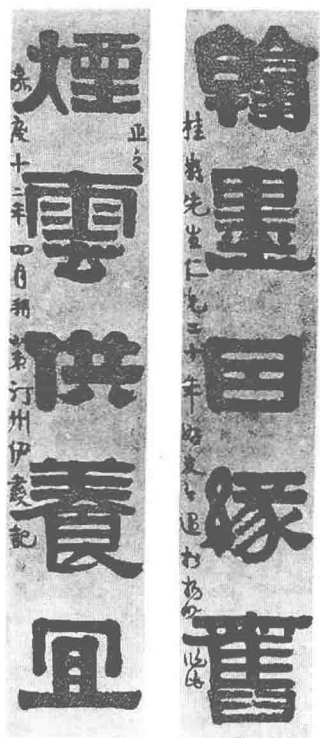 翰墨因緣舊
桂巖先生仁兄二十年好友
正之
煙雲供養宜
嘉慶十二年四月朔 汀州伊秉綬記